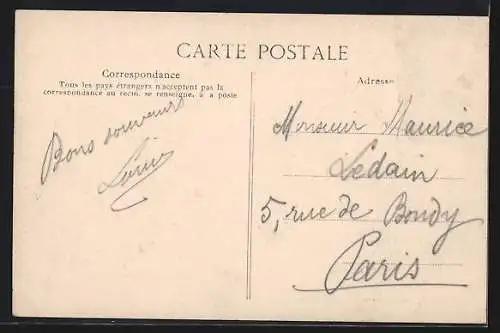 CARTE POSTALE
Correspondance
Tous les pays étrangers n'acceptent pas la
correspondance au recto. se renseigner à la poste
Bons souvenirs
Louis
Adresse
Monsieur Maurice
Ledain
5, rue de Bondy
Paris